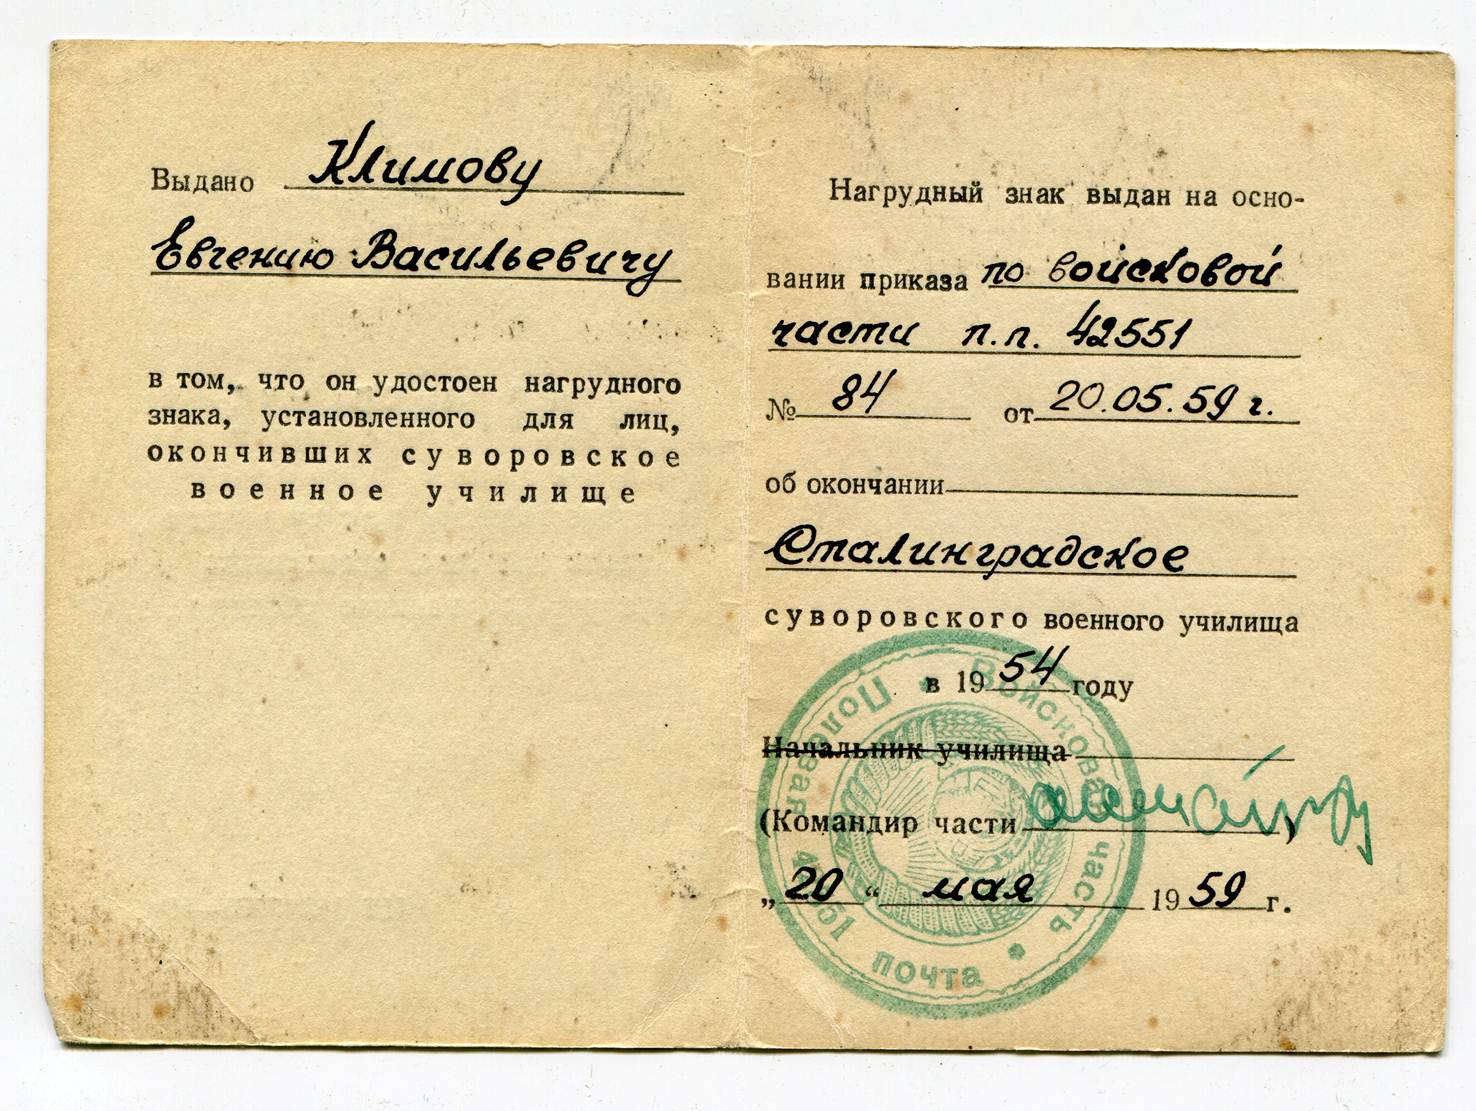 Выдано Климову
Евгению Васильевичу
в том, что он удостоен нагрудного
знака, установленного для лиц,
окончивших суворовское
военное училище
Нагрудный знак выдан на осно-
вании приказа по войсковой
части п.п. 42551
№ 84 от 20.05.59 г.
об окончании
Сталинградское
суворовского военного училища
в 1954 году
Начальник училища
(Командир части )
„20“ мая 1959 г.
Войсковая часть * Полевая почта 42551 *